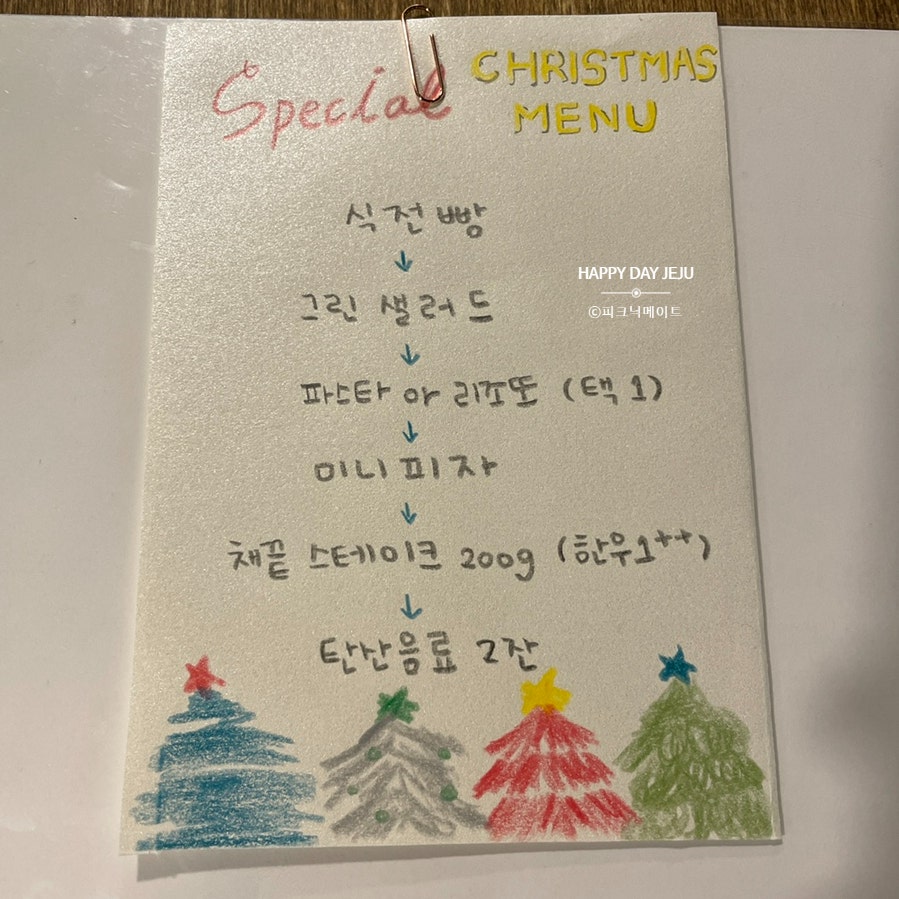 Special CHRISTMAS
MENU
식전빵
↓
그린 샐러드
↓
HAPPY DAY JEJU
©피크닉메이트
파스타 or 리조또 (택1)
↓
미니피자
↓
채끝 스테이크 200g (한우1++)
↓
탄산음료 2잔